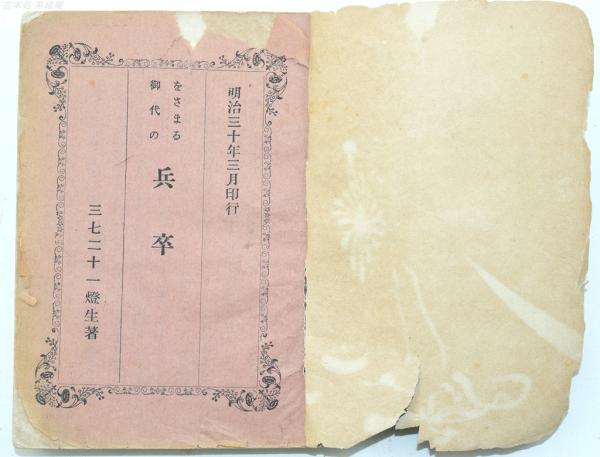 明治三十年三月印行
をさまる
御代の
兵卒
三七二十一燈生著